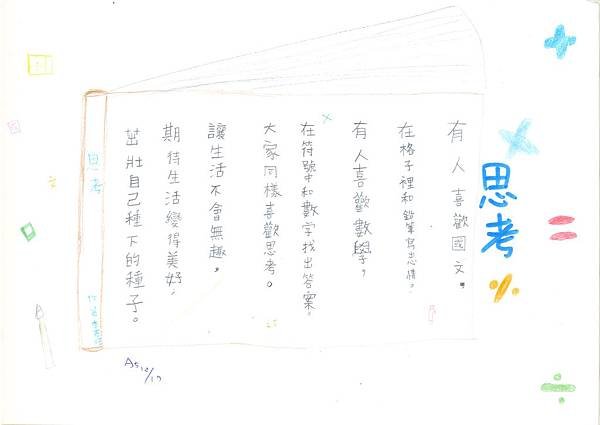 思考
有人喜歡國文，
在格子裡和鉛筆寫情。
有人喜歡數學，
在符號中和數字找出答案。
大家同樣喜歡思考。
讓生活不會無趣。
期待生活變得美好，
茁壯自己種下的種子。
思考